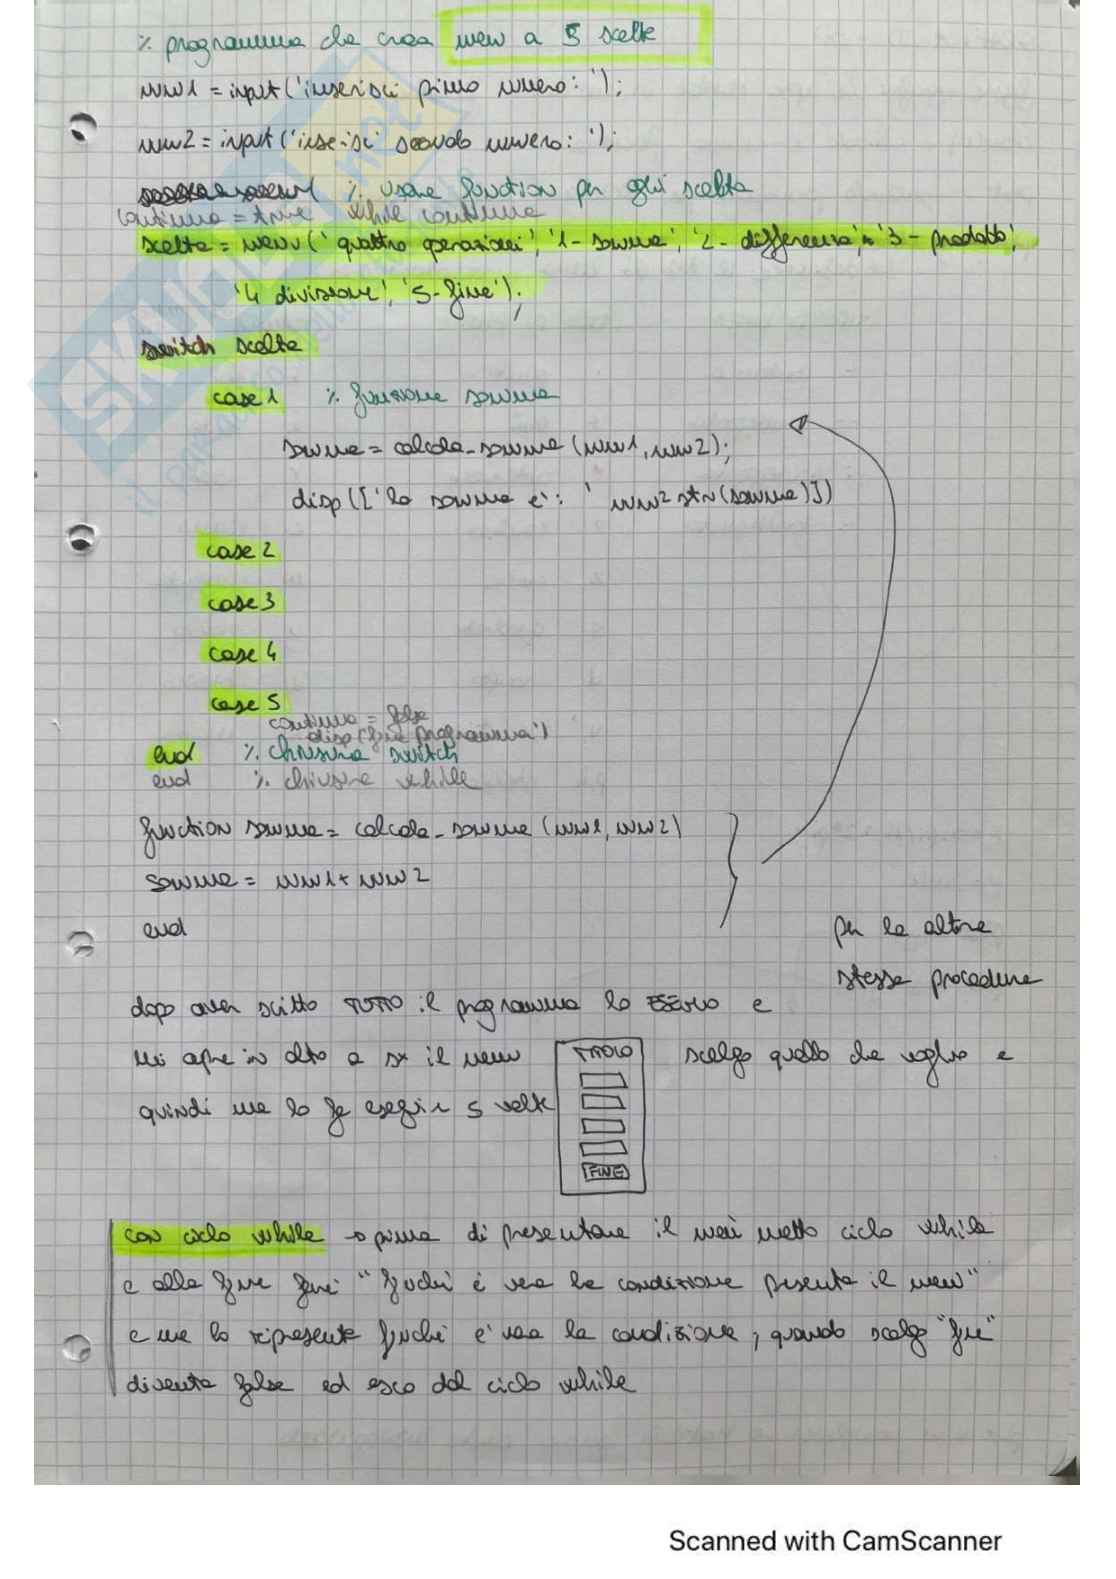 % programma che crea menu a 5 scelte
num1 = input('inserisci primo numero: ');
num2 = input('inserisci secondo numero: ');
% usare function per ogni scelta
continua = true while continua
scelta = menu('quattro operazioni', '1- somma', '2- differenza', '3- prodotto',
'4 divisione', '5- fine');
switch scelta
case 1 % funzione somma
somma = calcola_somma (num1, num2);
disp(['la somma è: ' num2str(somma)])
case 2
case 3
case 4
case 5
continua = false
disp('fine programma')
end % chiusura switch
end % chiusura while
function somma = calcola_somma (num1, num2)
somma = num1 + num2
end
per le altre
stessa procedura
dopo aver scritto TUTTO il programma lo ESEGUO e
mi apre in alto a sx il menu
TITOLO
FINE
scelgo quello che voglio e
quindi me lo fa eseguire 5 volte
con ciclo while → prima di presentare il menù metto ciclo while
e alla fine fine "finché è vera la condizione presenta il menu"
e me lo ripresenta finché è vera la condizione, quando scelgo "fine"
diventa false ed esco dal ciclo while
SKUOLA.net
Scanned with CamScanner